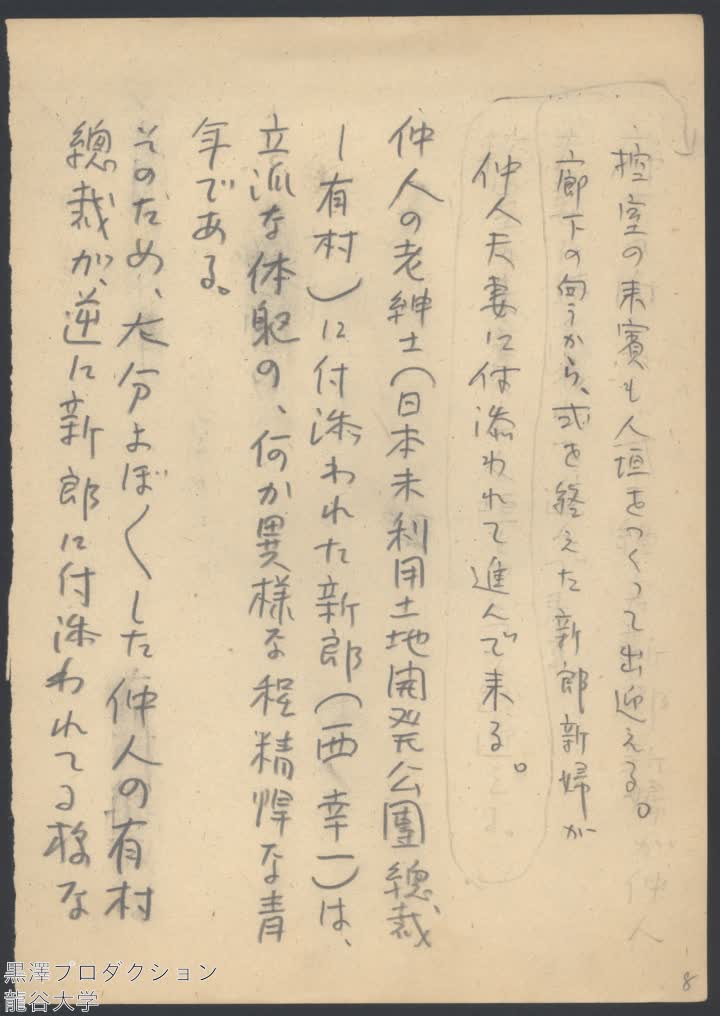 控室の来賓も人垣をつくって出迎える。
廊下の向うから、式を終えた新郎新婦が
仲人夫妻に付添われて進んで来る。
仲人の老紳士(日本未利用土地開発公團總裁
ー有村)に付添われた新郎(西幸一)は、
立派な体躯の、何か異様な程精悍な青
年である。
そのため、大分よぼ〱した仲人の有村
總裁が、逆に新郎に付添われてる様な
8
黒澤プロダクション
龍谷大学